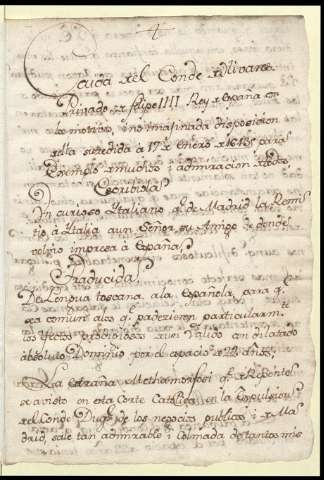 Caida del Conde de Olivares
Privado de felipe IIII Rey de España con
los motivos, i no imaginada disposicion
della sucedida a 17 de Enero de 1643 para
Exemplo de muchos i admiracion de todos
Escribiola
Un curioso Italiano q.e de Madrid la Remi
tio a Italia a un Señor su Amigo de donde
volvio impresa a España
Traducida
De Lengua toscana a la Española, para q.e
sea comun a los q.e padezieron particularm.te
los efectos prodigiosos de un Valido con dilatado
absoluto Dominio por el espacio de 22 años.
La estraña Methamorfosi q.e de Repente
se a visto en esta Corte Catolica en la Expulsion
del Conde Duq.e de los negocios publicos i de Ma
drid, sale tan admirable i colmada de tantos mis